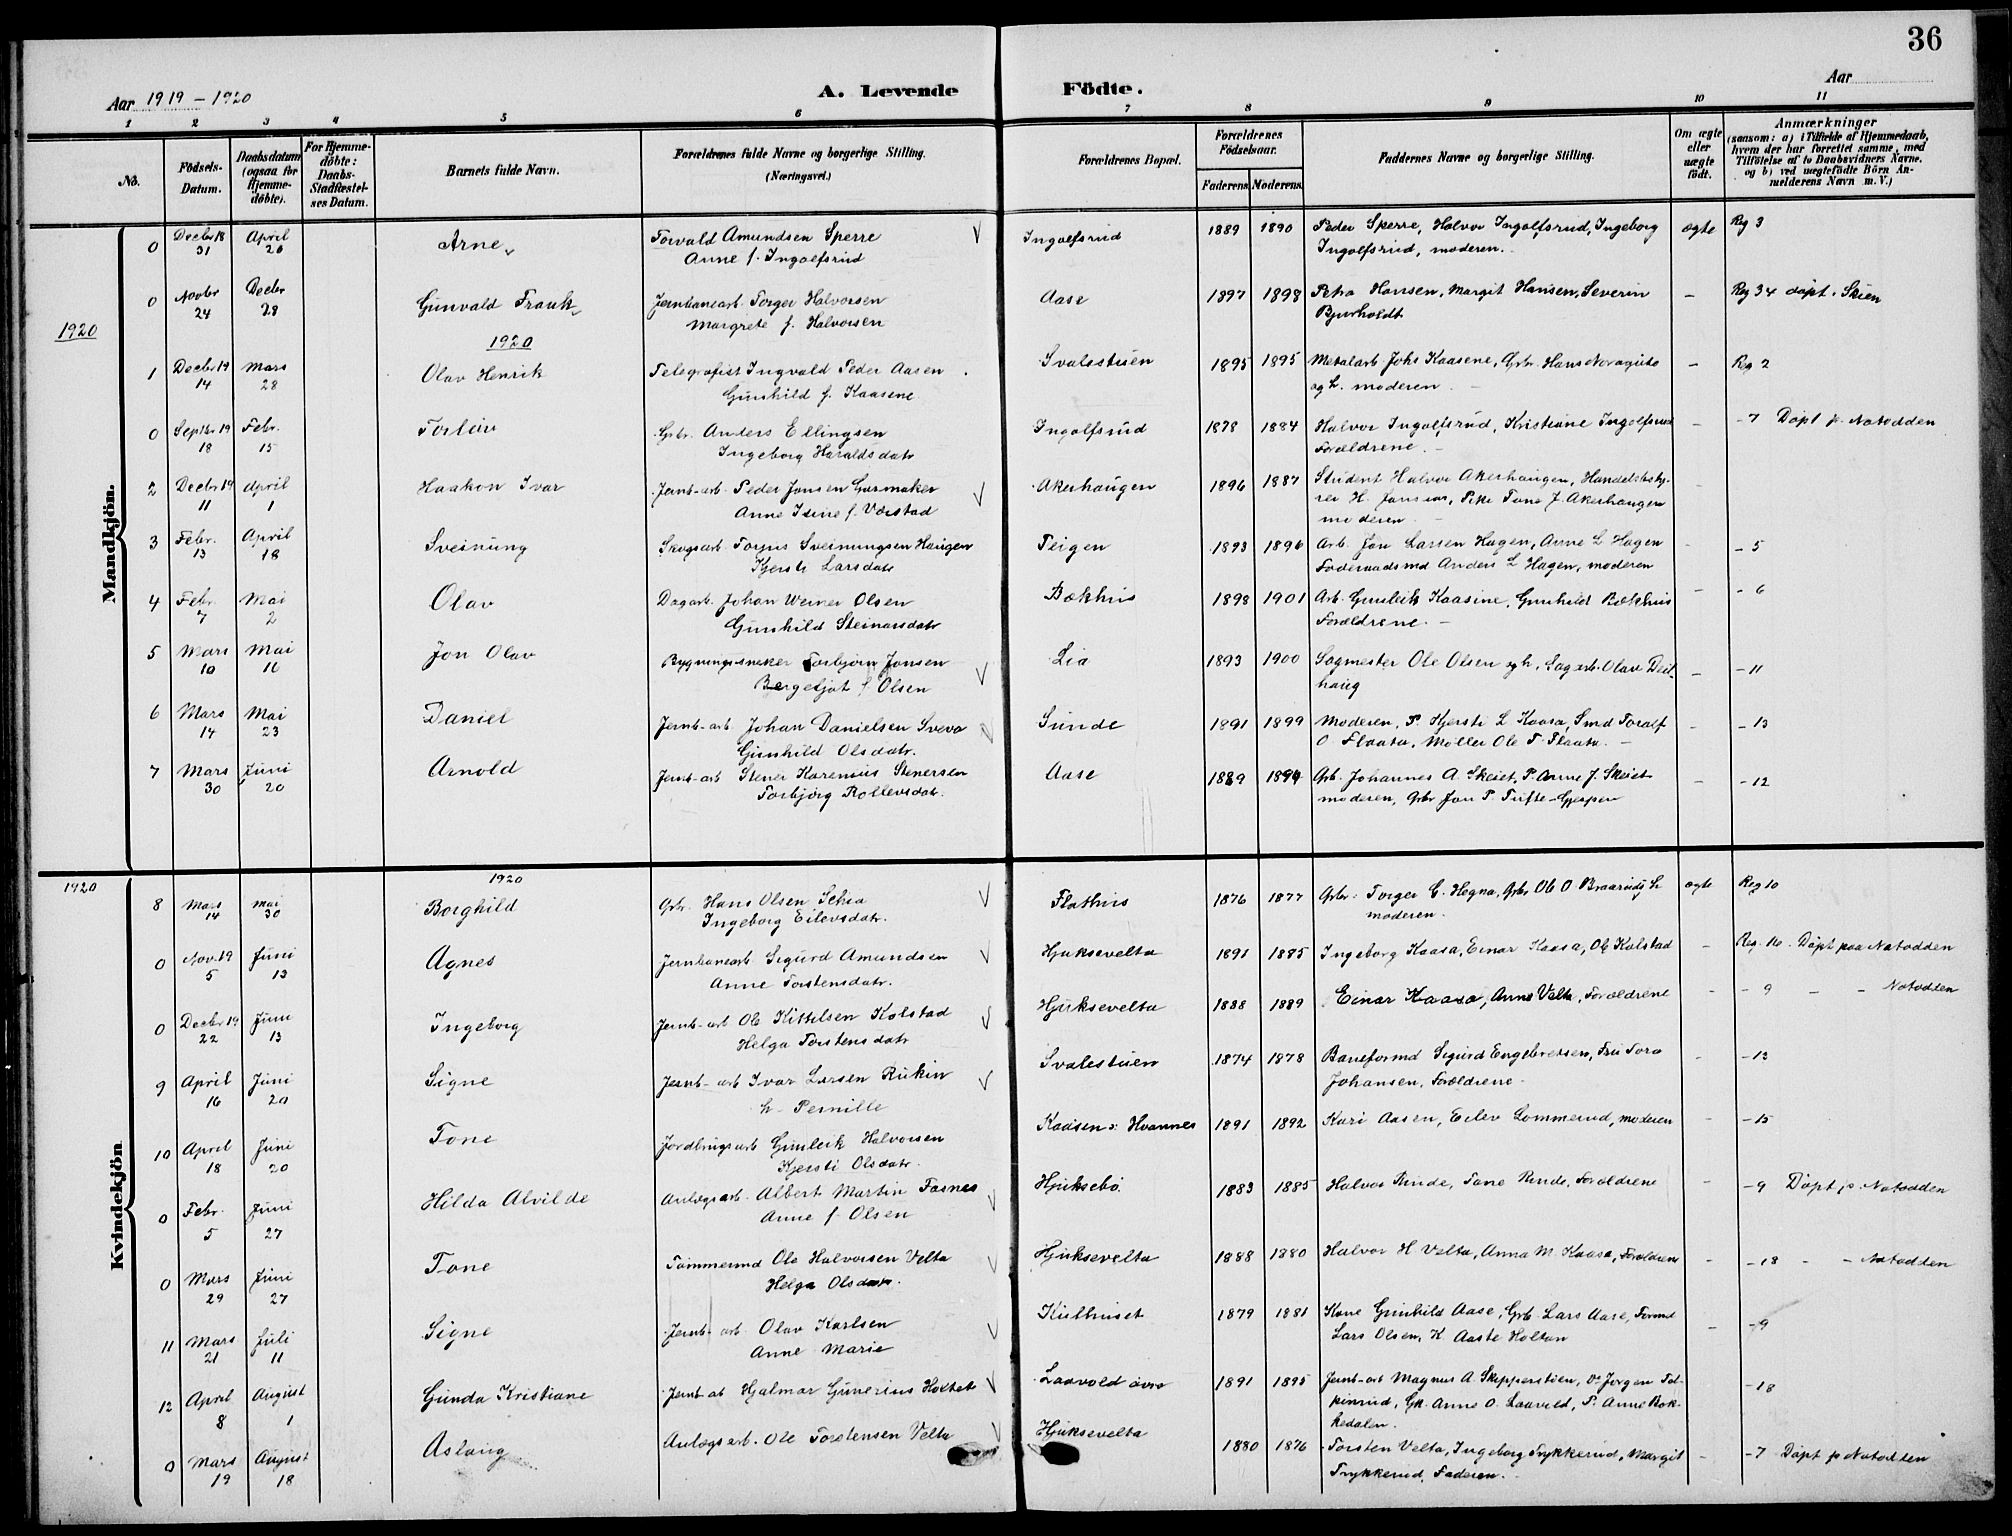 36
Aar 1919 - 1920
A. Levende Födte.
Aar
1 2 3 4 5 6 7 8 9 10 11
No.
Födsels-Datum.
Daabsdatum (ogsaa for Hjemme-döbte).
For Hjemme-döbte: Daabs-Stadfæstel-ses Datum.
Barnets fulde Navn.
Forældrenes fulde Navne og borgerlige Stilling. (Næringsvei.)
Forældrenes Bopæl.
Forældrenes Födselsaar.
Faderens Moderens
Faddernes Navne og borgerlige Stilling.
Om ægte eller uægte födt.
Anmærkninger (saasom: a) i Tilfælde af Hjemmedaab, hvem der har forrettet samme, med Tilföielse af to Daabsvidners Navne. og b) ved uægtefödte Börn An-melderens Navn m. V.)
Mandkjön.
0 Decbr 18 31 April 20 Arne Torvald Amundsen Sperre Ingolfsrud 1889 1890 Peder Sperre, Halvor Ingolfsrud, Ingeborg ægte Reg 3
Anne f. Ingolfsrud Ingolfsrud, moderen.
0 Novbr 24 Decbr 28 Gunvald Frank Jernbanearb. Torger Halvorsen Aase 1897 1898 Petra Hansen, Margit Hansen, Severin - Reg 34 døpt. Skien
Margrete f. Halvorsen Bjurholdt
1920
1920
1 Decbr 19 14 Mars 28 Olav Henrik Telegrafist Ingvald Peder Aasen Svalestuen 1895 1895 Metalarb Johs Kaasene, Grbr. Hans - Reg 2
Gunhild f. Kaasene og h. moderen.
0 Septbr 19 18 Febr. 15 Torleiv Grbr. Anders Ellingsen Ingolfsrud 1878 1884 Halvor Ingolfsrud, Kristiane Ingolfsrud - -7 Døpt p. Notodden
Ingeborg Haraldsdatr Forældrene.
2 Decbr 19 11 April 1 Haakon Ivar Jernb-arb. Peder Jonsen Akerhaugen 1896 1887 Student Halvor Akerhaugen, Handelsbesty-
Anne f. rer H. Jonsen, Pike Tone J. Akerhaugen
moderen
3 Febr. 13 April 18 Sveinung Skogsarb. Torjus Sveinungsen Haugen Teigen 1893 1896 Arb. Jon Larsen Hagen, Anne L Hagen - -5
Kjersti Larsdatr Anders L Hagen, moderen
4 Febr. 7 Mai 2 Olav Dagarb. Johan Werner Olsen Bækhus 1898 1901 Arb. Gunleik Kaasine, Gunhild Bækhus - -6
Gunhild Steinarsdatr Forældrene.
5 Mars 10 Mai 16 Jon Olav Bygningssneker Torbjørn Jonsen Lia 1893 1900 Sagmester Ole Olsen og h., Sagarb. Olav - -11
Bergetjøt f. Olsen haug
6 Mars 14 Mai 23 Daniel Jernb-arb Johan Danielsen Sveva Sunde 1891 1899 Moderen, P. Kjersti L Kaasa, Smd Toralf - -13
Gunhild Olsdatr. O Flaata, Møller Ole T. Flaata.
7 Mars 30 Juni 20 Arnold Jernb-arb Stener Karenius Stenersen Aase 1889 1894 Grb. Johannes A. Skeiet, P. Anne J. Skeiet - -12
Torbjørg Rollevsdatr. moderen, Grbr Jon P. Tufte-Gjerpen
Kvindekjön
1920
1920
8 Mars 14 Mai 30 Borghild Grbr. Hans Olsen Flathus 1876 1877 Grbr. Torger G. Hegna, Grbr Ole O. ægte Reg 10
Ingeborg Eilevsdatr. moderen.
0 Nov. 19 5 Juni 13 Agnes Jernbanearb. Sigurd Amundsen Hjuksevelta 1891 1885 Ingeborg Kaasa, Einar Kaasa, Ole Kolstad - Reg. 10. Døpt paa Notodden
Anne Torstensdatr.
0 Decbr 19 22 Juni 13 Ingeborg Jernb-arb Ole Kittilsen Kolstad Hjuksevelta 1888 1889 Einar Kaasa, Anne Velta, Forældrene - -9 - - Notodden
Helga Torstensdatr
9 April 16 Juni 20 Signe Jernb-arb Ivar Larsen Rukin Svalestuen 1874 1878 Baneformd Sigurd Engebretsen, Fru Tora - -13
h. Pernille Johansen, Forældrene
10 April 18 Juni 20 Tone Jordbrugsarb Gunleik Halvorsen Kaasen v. Hvannes 1891 1892 Kari Aasen, Eilev Lommerud, moderen - -15
Kjersti Olsdatr.
0 Febr. 5 Juni 27 Hilda Alvilde Anlægsarb. Albert Martin Fosnes Hjuksebø 1883 1885 Halvor Rinde, Tone Rinde, Forældrene - -9 Døpt p. Notodden
Anne f. Olsen
0 Mars 29 Juni 27 Tone Tømmermd Ole Halvorsen Velta Hjuksevelta 1888 1880 Halvor H Velta, Anna M. Kaasa, Forældrene - -18 - - Notodden
Helga Olsdatr.
11 Mars 21 Juli 11 Signe Jernb-arb. Olav Karlsen 1879 1881 Kone Gunhild Aase, Grb. Lars Aase, Formd - -9
Anne Marie Lars Olsen, K. Aaste Holtan
12 April 8 August 1 Gunda Kristiane Jernb-ab Hjalmar Gunerius Holtet Laavold øvre 1891 1895 Jernb-arb Magnus A. Skipperstuen, Jørgen -18
Gk. Anne O. Laavold, P. Anne Bok-
kedalen.
0 Mars 19 August 18 Aslaug Anlægsarb. Ole Torstensen Velta Hjuksevelta 1880 1876 Torsten Velta, Ingeborg Trykkerud, Margit - -7 Døpt p Notodden
Trykkerud, Faderen.